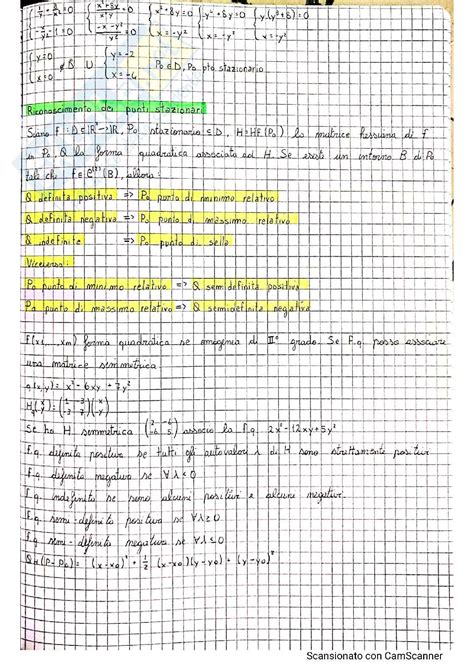 y=0 ∉ D U y=-2 P₀ ∈ D, P₀ pto stazionario
x=0 x=-4
Riconoscimento dei punti stazionari
Siano f: D⊂ℝ²→ℝ, P₀ stazionario ∈ D, H=Hf(P₀) la matrice hessiana di f
in P₀, Q la forma quadratica associata ad H. Se esiste un intorno B di P₀
tale che f∈C⁽²⁾(B), allora:
Q definita positiva => P₀ punto di minimo relativo
Q definita negativa => P₀ punto di massimo relativo
Q indefinite => P₀ punto di sella
Viceversa:
P₀ punto di minimo relativo => Q semidefinita positiva
P₀ punto di massimo relativo => Q semidefinita negativa
f(x₁, ..., xm) forma quadratica se omogenia di II° grado. Se f.q. posso associare
una matrice simmetrica
q(x,y) = x² - 6xy + 7y²
Se ho H simmetrica (2 -6 -6 5) associo la f.q. 2x²-12xy+5y²
f.q. definita positiva se tutti gli autovalori λ di H sono strettamente positivi
f.q. definita negativa se ∀λ<0
f.q. indefinita se sono alcuni positivi e alcuni negativi.
f.q. semi-definita positiva se ∀λ≥0
f.q. semi-definita negativa se ∀λ≤0
Scansionato con CamScanner